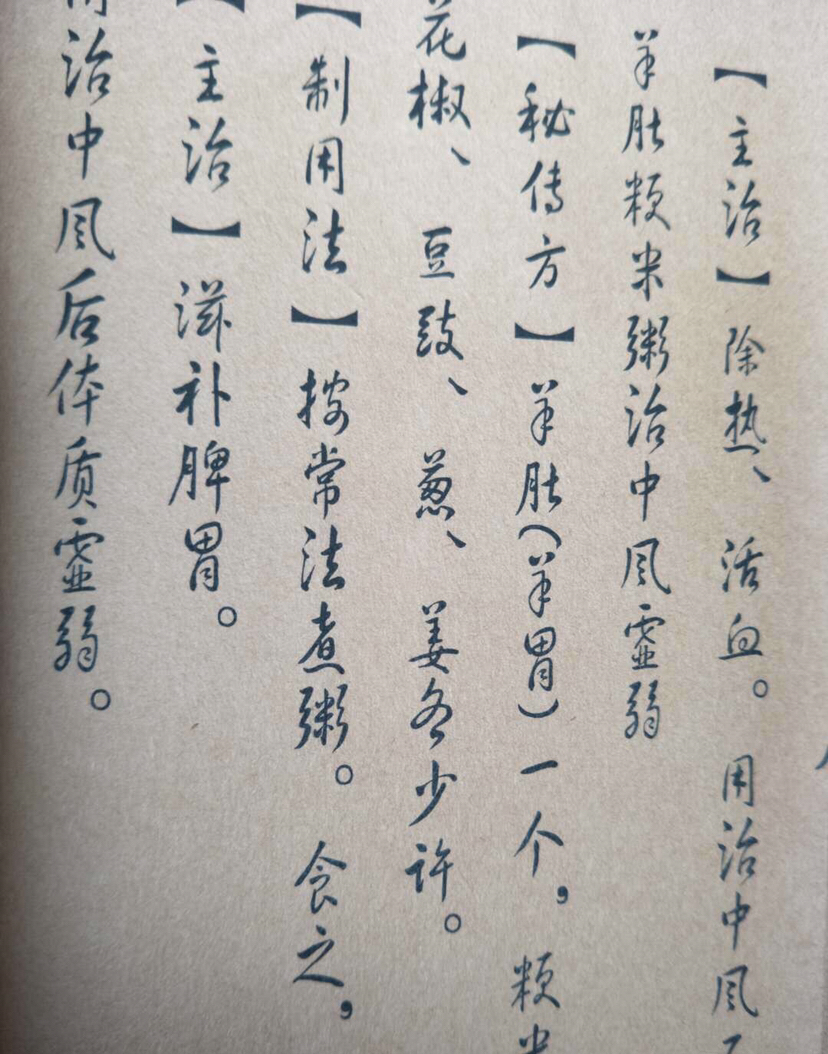 【主治】除热、活血。用治中风
羊肚粳米粥治中风虚弱
【秘传方】羊肚(羊胃)一个,粳米
花椒、豆豉、葱、姜各少许。
【制用法】按常法煮粥。食之,
【主治】滋补脾胃。
用治中风后体质虚弱。